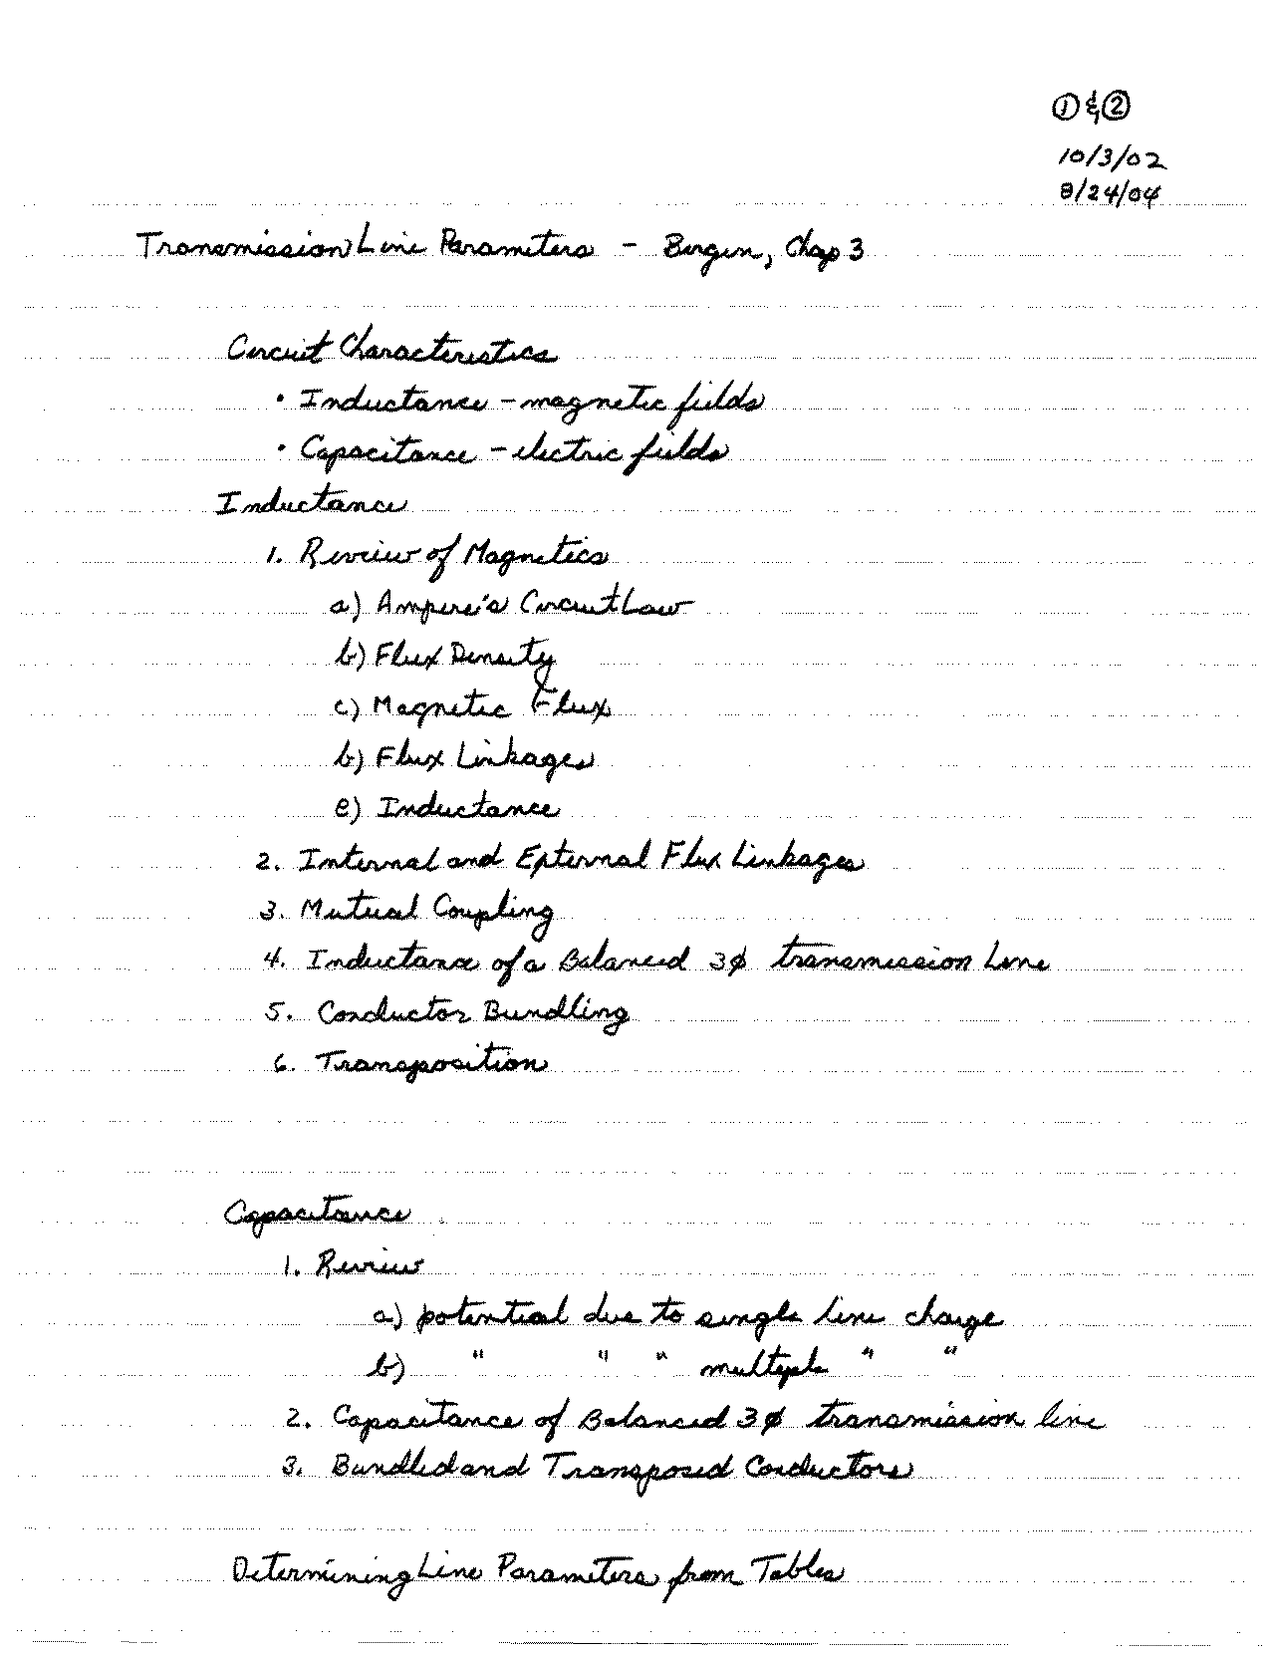 ① & ②
10/3/02
8/24/04
Transmission Line Parameters - Bergen, Chap 3
Circuit Characteristics
• Inductance - magnetic fields
• Capacitance - electric fields
Inductance
1. Review of Magnetics
a) Ampere's Circuit Law
b) Flux Density
c) Magnetic Flux
b) Flux Linkages
e) Inductance
2. Internal and External Flux Linkages
3. Mutual Coupling
4. Inductance of a Balanced 3ϕ transmission Line
5. Conductor Bundling
6. Transposition
Capacitance
1. Review
a) potential due to single line charge
b) " " " multiple " "
2. Capacitance of Balanced 3ϕ transmission line
3. Bundled and Transposed Conductors
Determining Line Parameters from Tables